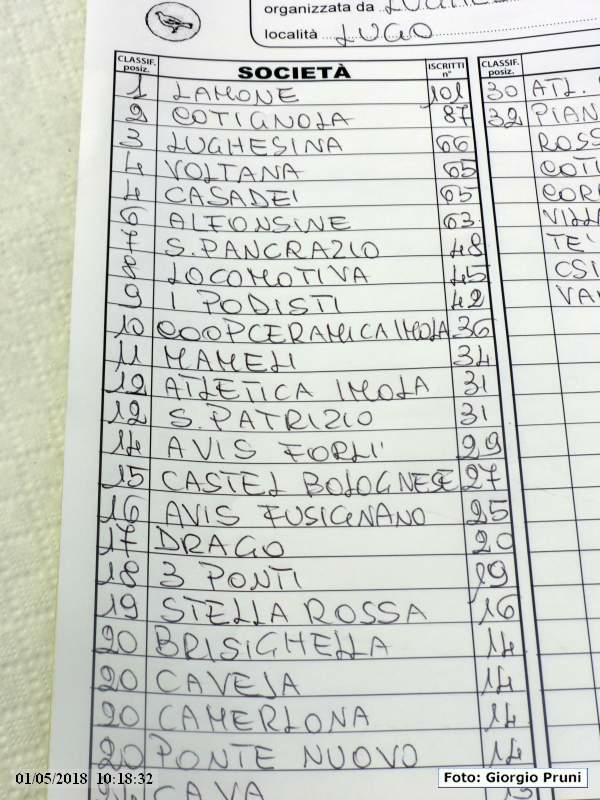 organizzata da
località LUGO
CLASSIF. posiz. SOCIETÀ ISCRITTI n° CLASSIF. posiz.
1 LAMONE 101 30 ATL.
2 COTIGNOLA 87 32 PIAN
3 LUGHESINA 66 ROSS
4 VOLTANA 65 COTI
4 CASADEI 65 COR
6 ALFONSINE 63 VILL
7 S. PANCRAZIO 48 TE'
8 LOCOMOTIVA 45 CSI
9 I PODISTI 42 VA
10 COOPCERAMICA IMOLA 36
11 MAMELI 34
12 ATLETICA IMOLA 31
12 S. PATRIZIO 31
14 AVIS FORLI' 29
15 CASTEL BOLOGNESE 27
16 AVIS FUSIGNANO 25
17 DRAGO 20
18 3 PONTI 19
19 STELLA ROSSA 16
20 BRISIGHELLA 14
20 CAVEJA 14
20 CAMERLONA 14
20 PONTE NUOVO 14
CAVA
01/05/2018 10:18:32
Foto: Giorgio Pruni